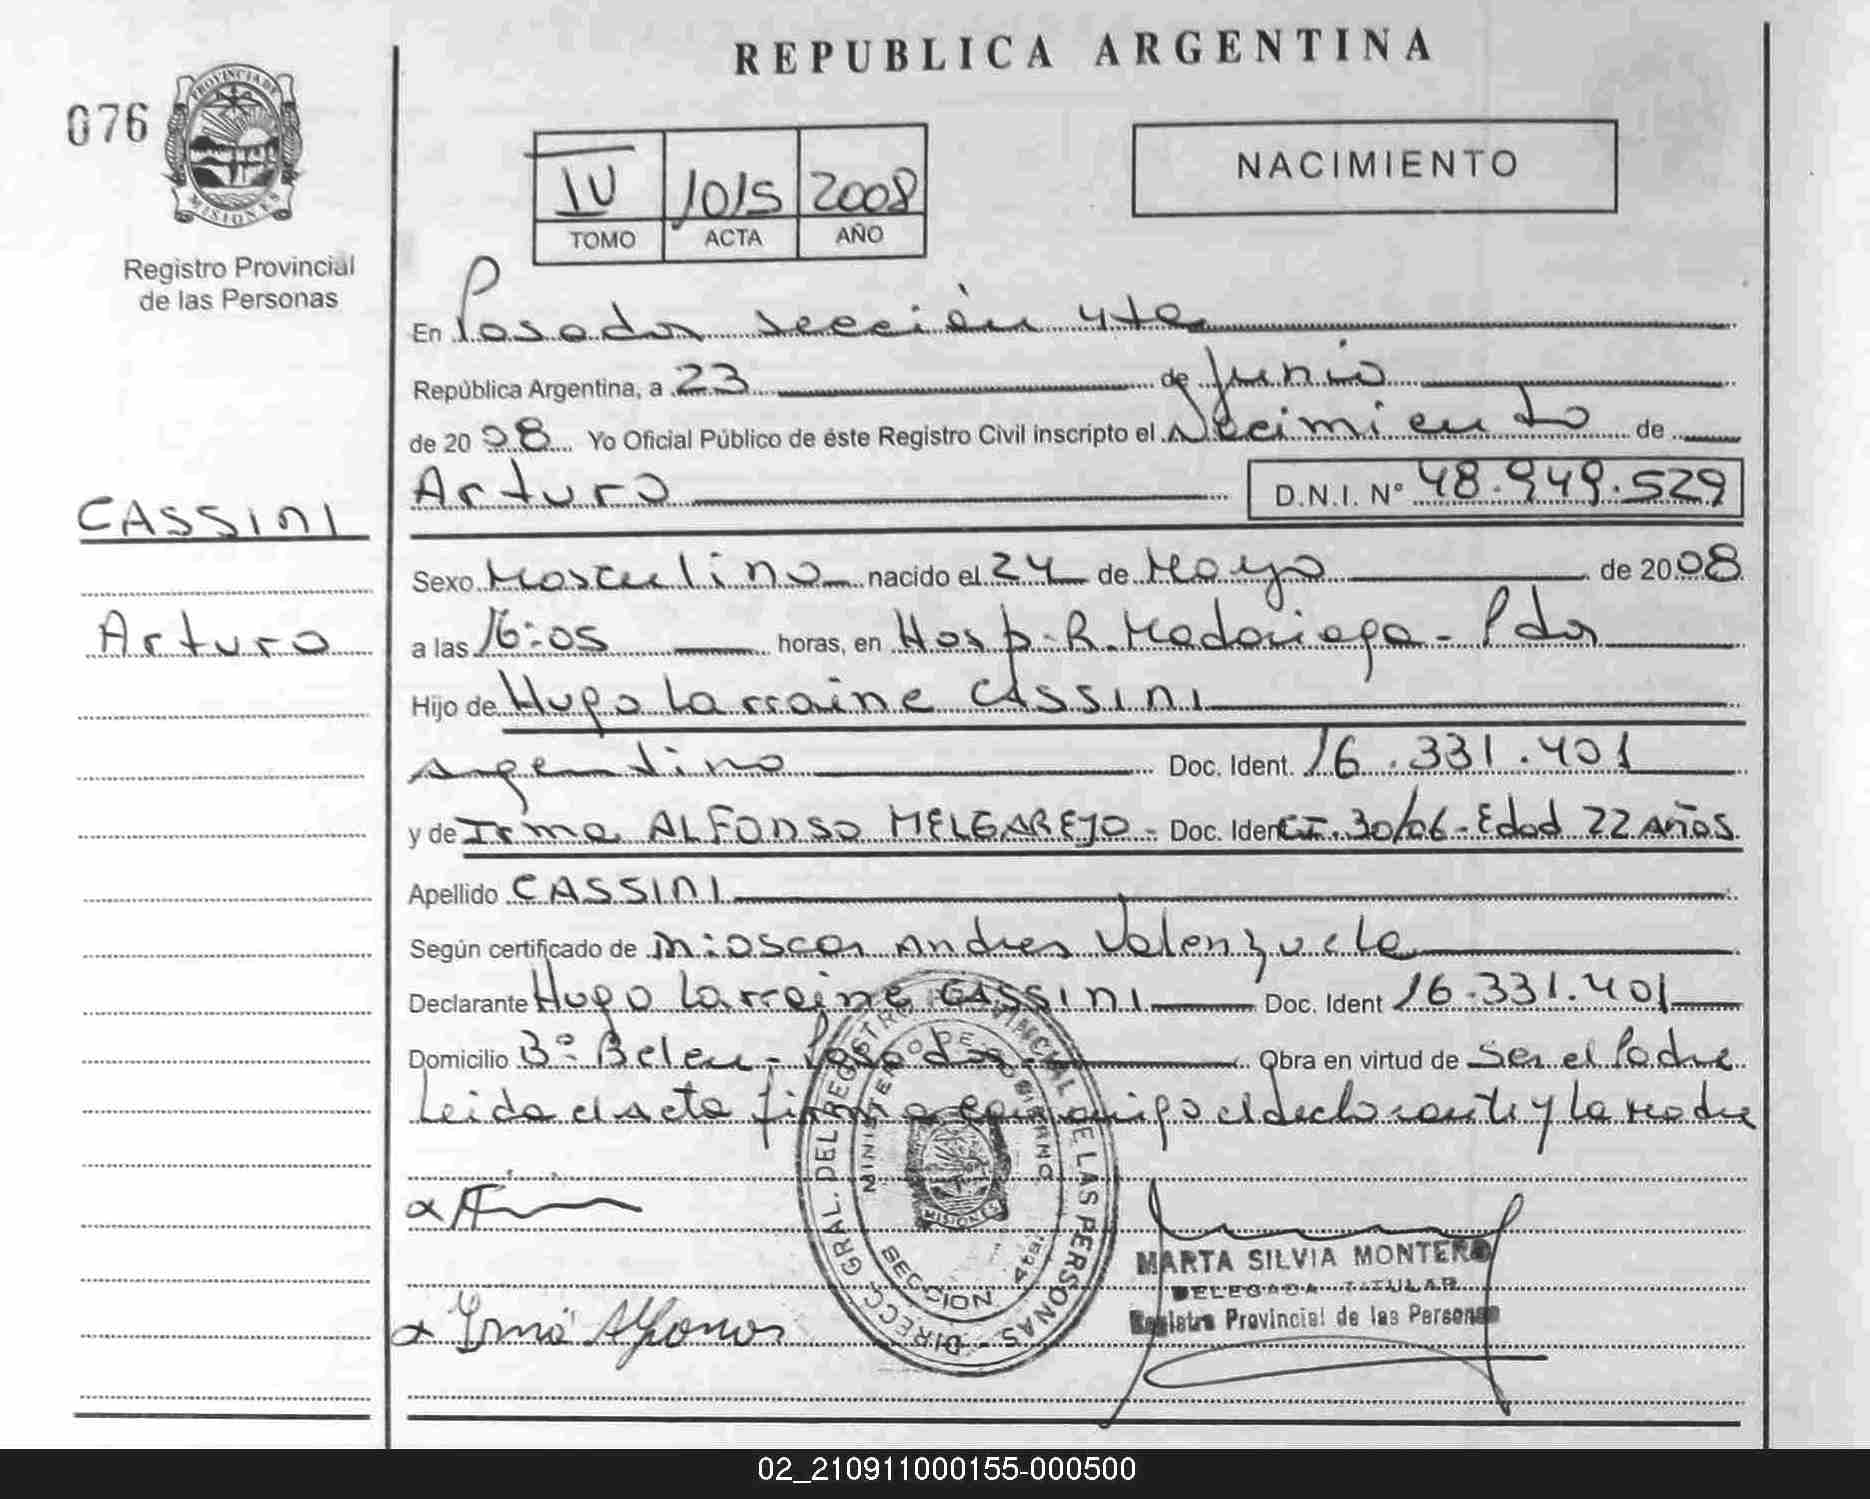 REPUBLICA ARGENTINA
076
PROVINCIA DE
MISIONES
Registro Provincial
de las Personas
IV 1015 2008
TOMO ACTA AÑO
NACIMIENTO
En Posadas sección 4ta
República Argentina, a 23 de Junio
de 2008 Yo Oficial Público de éste Registro Civil inscripto el Nacimiento de
Arturo D.N.I. Nº 48.949.529
CASSINI
Arturo
Sexo Masculino nacido el 24 de Mayo de 2008
a las 16:05 horas, en Hosp. R. Madariaga - Pdas
Hijo de Hugo Larraine CASSINI
argentino Doc. Ident. 16.331.401
y de Irma ALFONSO MELGAREJO - Doc. Ident CI. 30/06 - Edad 22 Años
Apellido CASSINI
Según certificado de Andres Valenzuela
Declarante Hugo Larraine CASSINI Doc. Ident 16.331.401
Domicilio Bº Belen - Posadas Obra en virtud de Ser el Padre
Leida el acta firma conmigo el declarante y la Madre
DIRECC. GRAL. DEL REGISTRO PROVINCIAL DE LAS PERSONAS
MINISTERIO DE GOBIERNO
MISIONES
SECCION 4ta.
MARTA SILVIA MONTERO
DELEGADA TITULAR
Registro Provincial de las Personas
Irma Alfonso
02_210911000155-000500